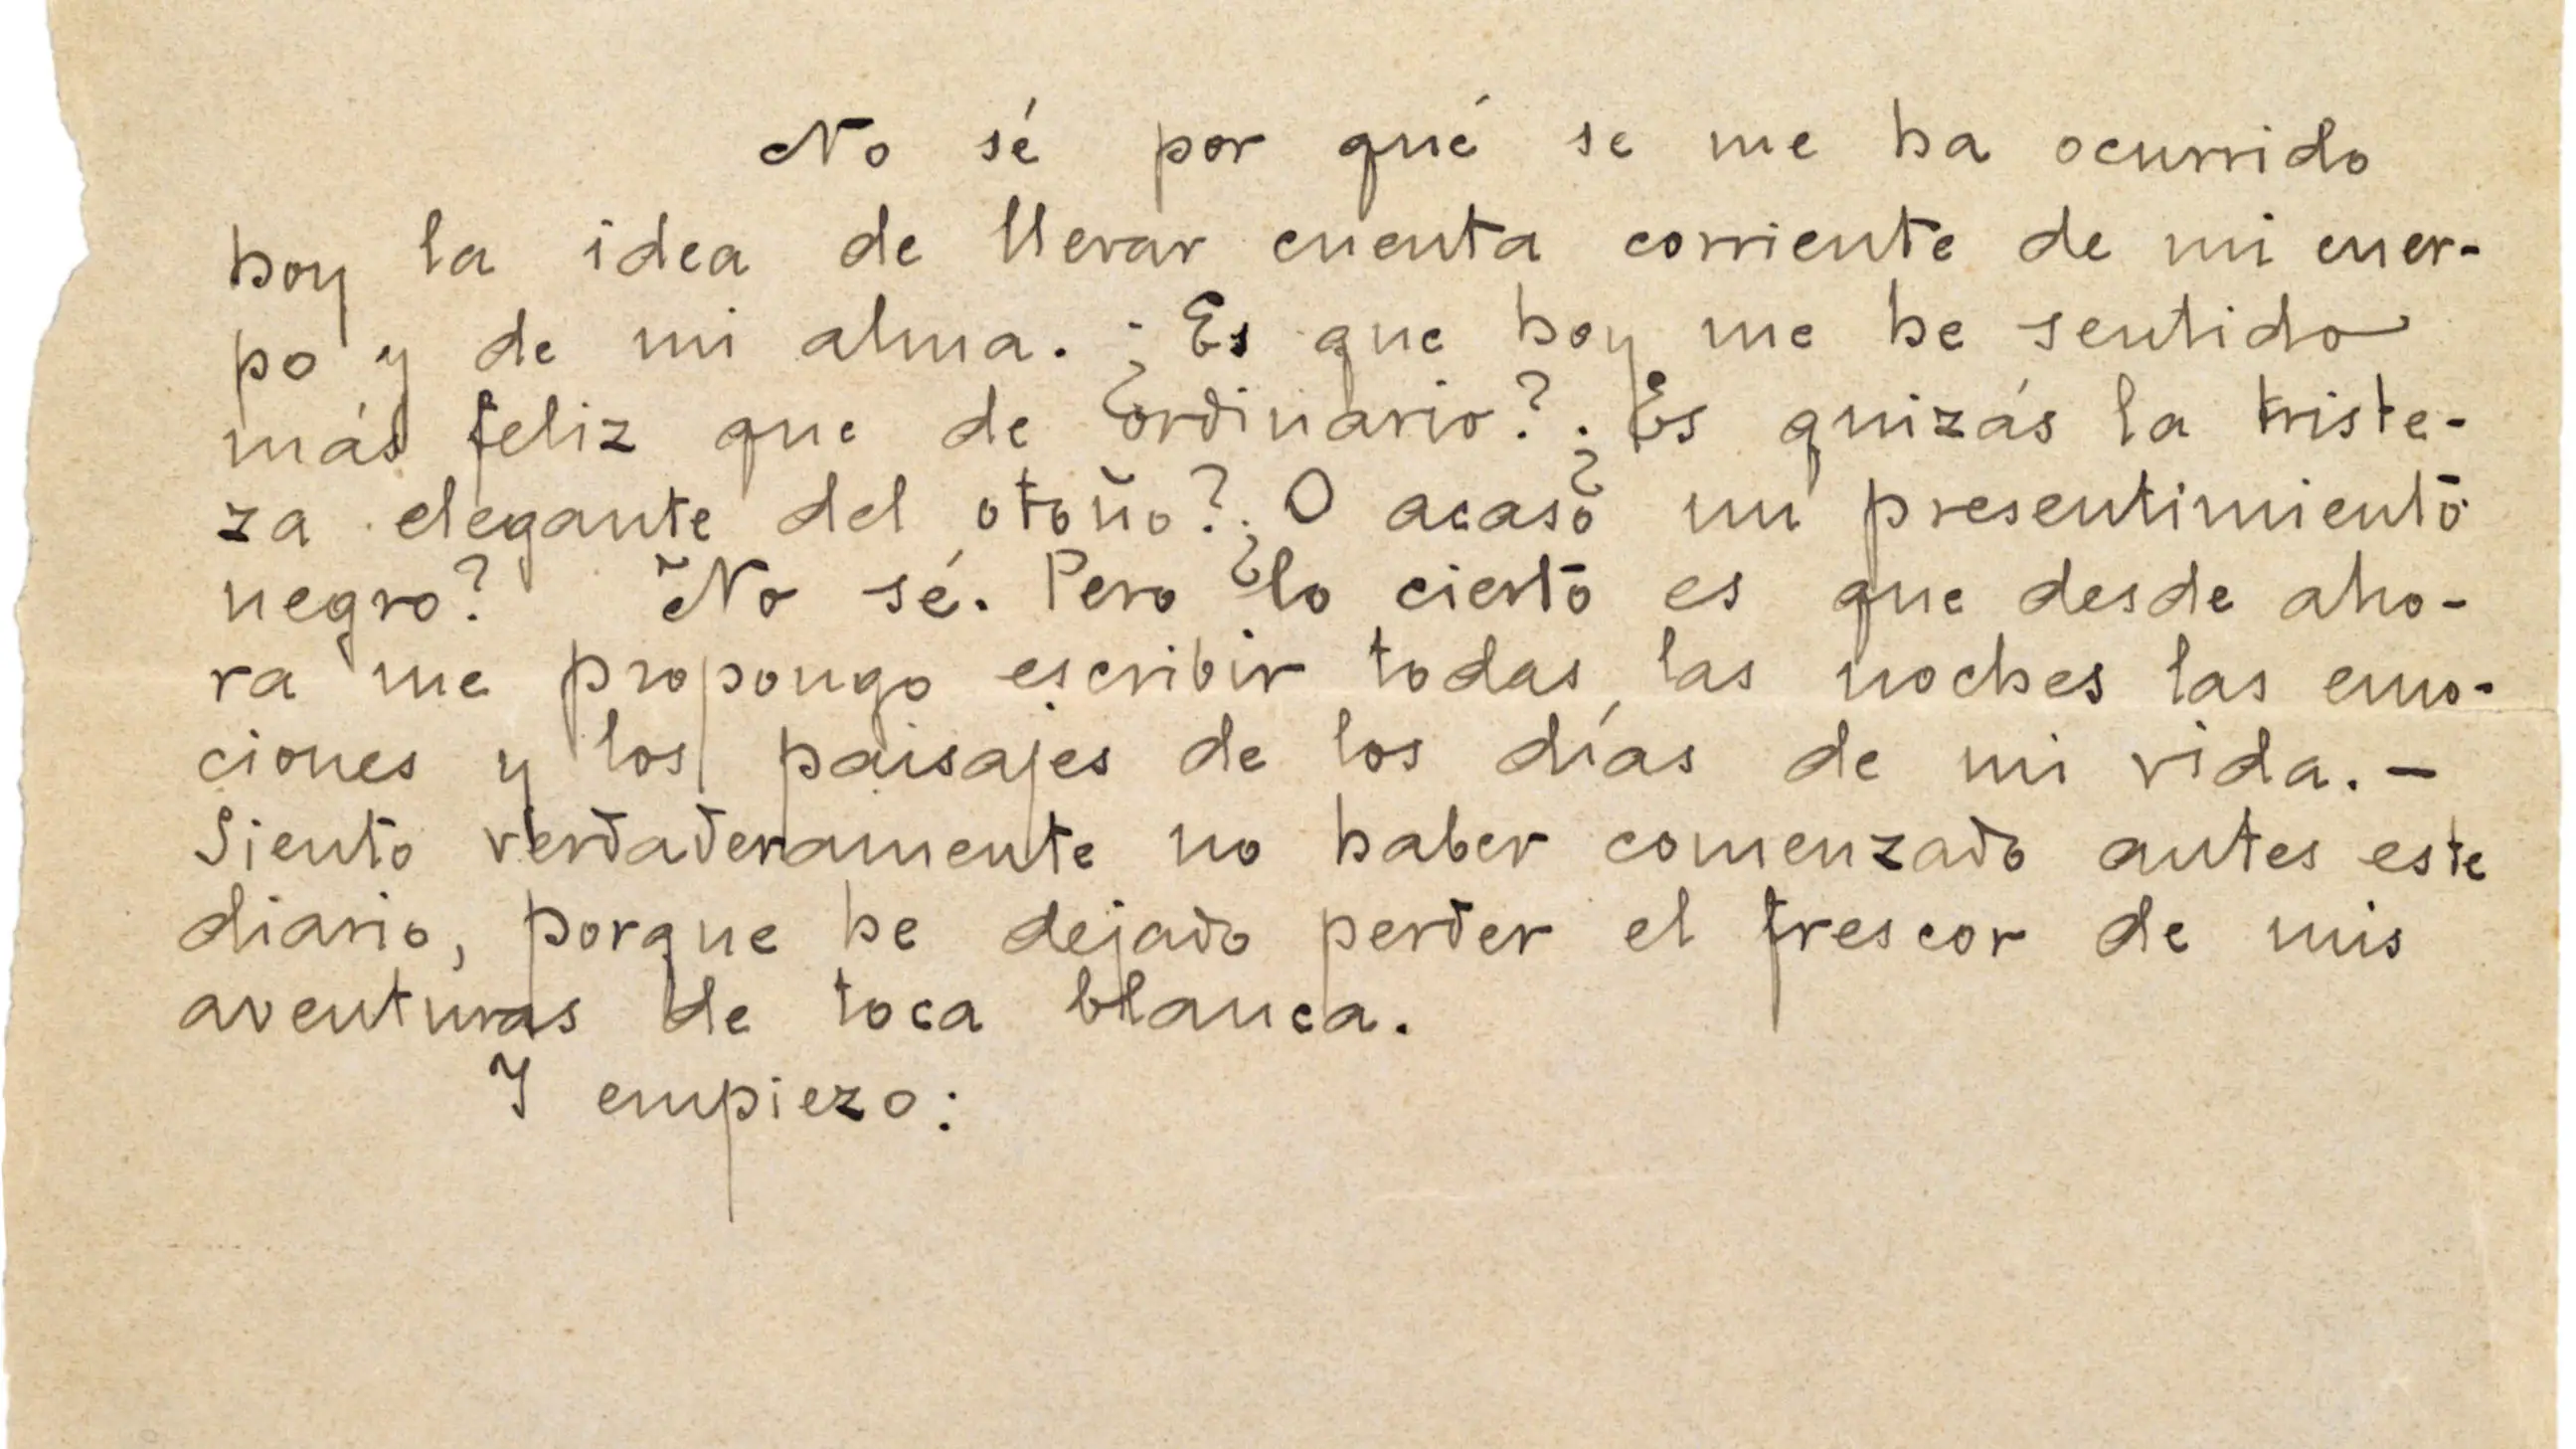 No sé por qué se me ha ocurrido
hoy la idea de llevar cuenta corriente de mi cuer-
po y de mi alma. ¿Es que hoy me he sentido
más feliz que de ordinario? ¿Es quizás la triste-
za elegante del otoño? ¿O acaso un presentimiento
negro? No sé. Pero lo cierto es que desde aho-
ra me propongo escribir todas las noches las emo-
ciones y los paisajes de los días de mi vida. —
Siento verdaderamente no haber comenzado antes este
diario, porque he dejado perder el frescor de mis
aventuras de toca blanca.
Y empiezo: